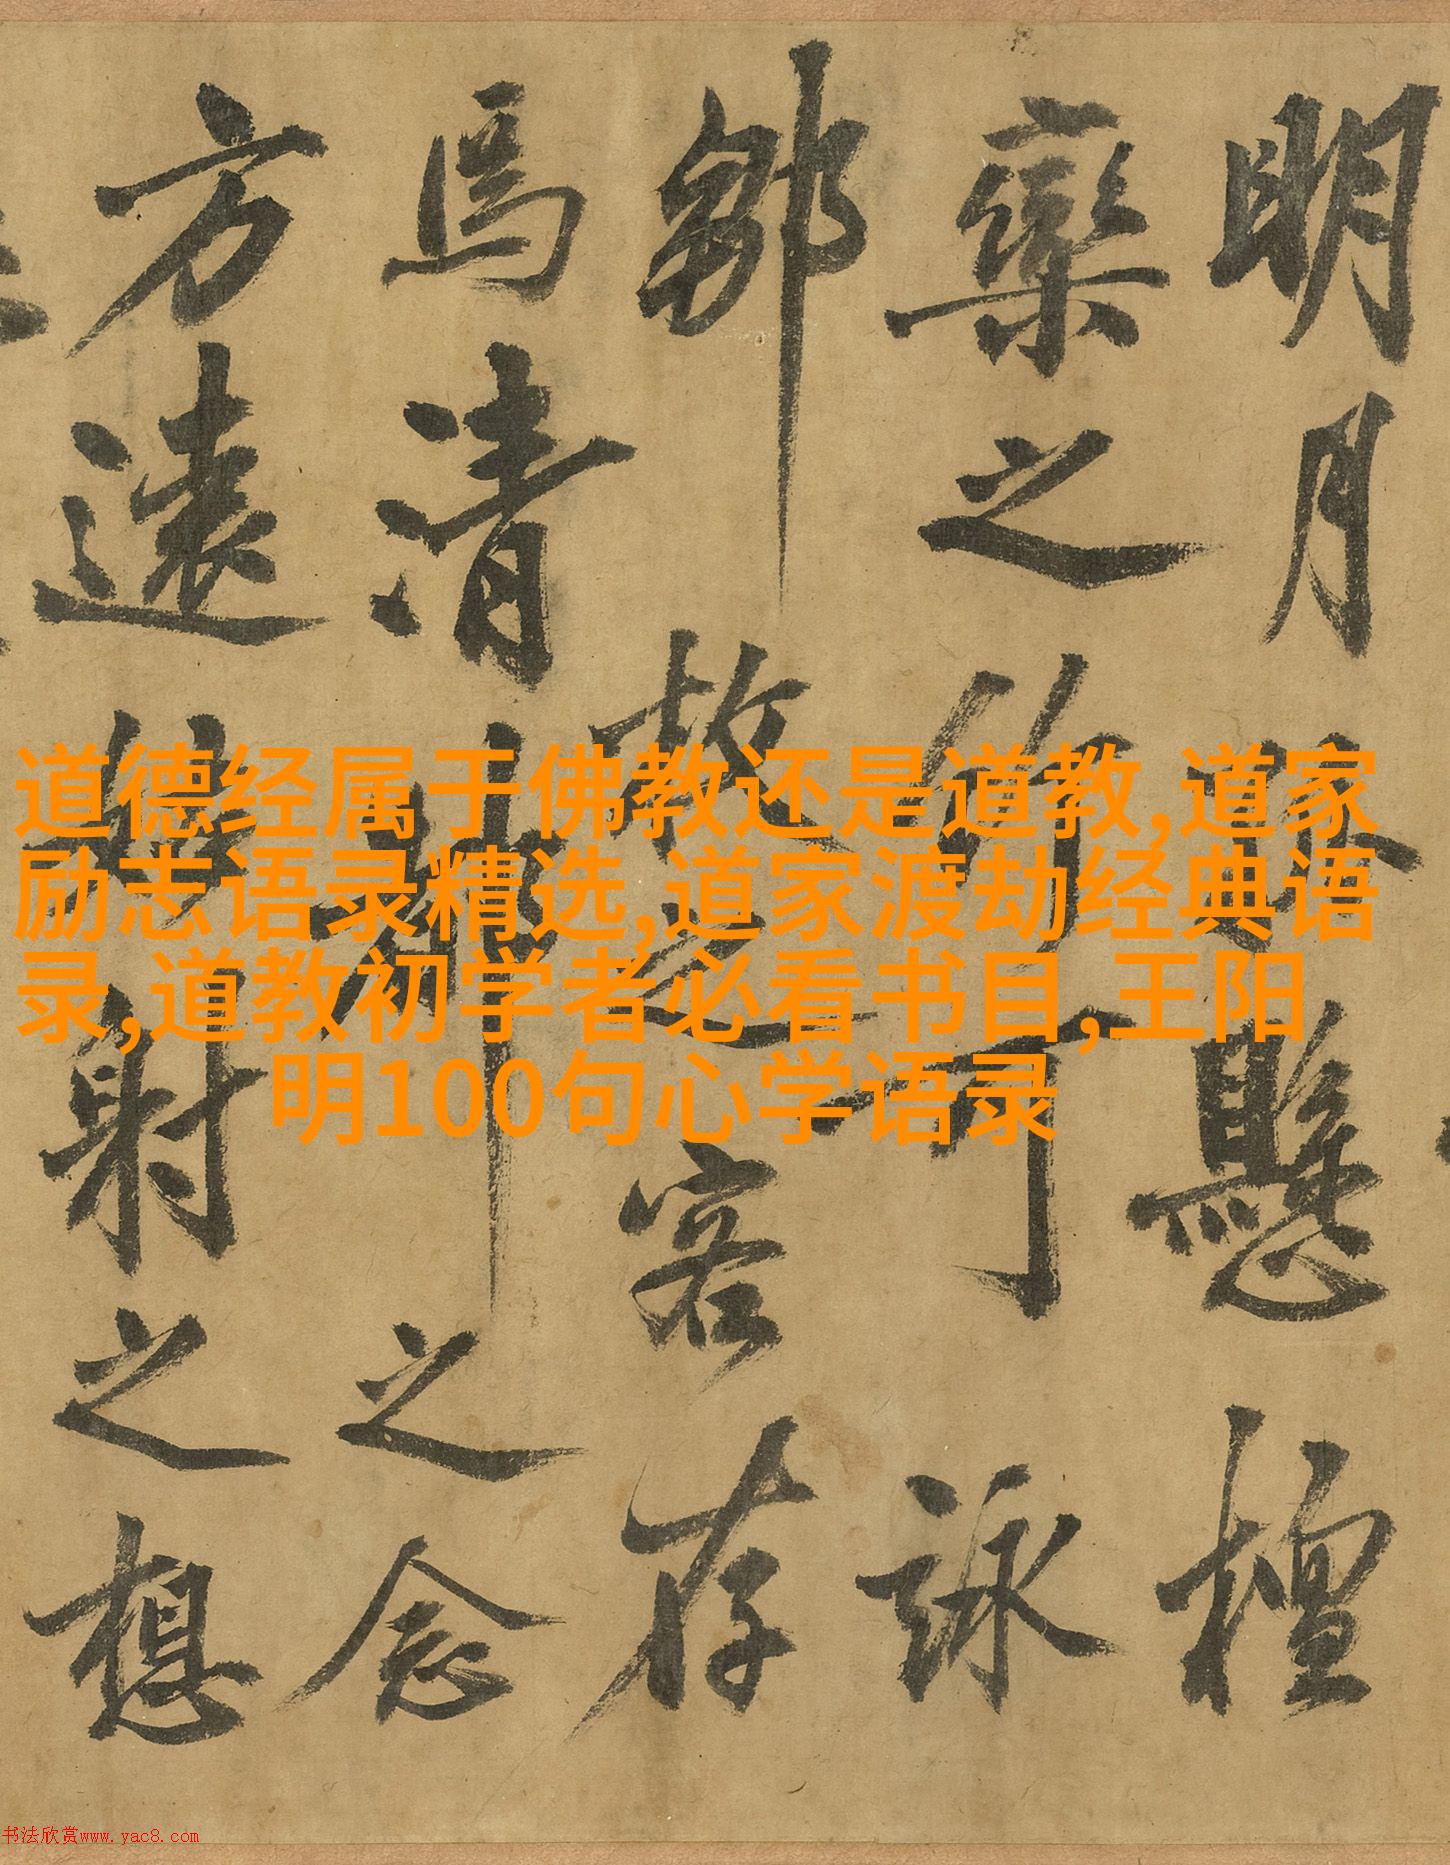 明月懸檀
欒之竹可詠
鄒枚之客存
焉清之念
方遠姑射之想
道德经属于佛教还是道教,道家
励志语录精选,道家渡劫经典语
录,道教初学者必看书目,王阳
明100句心学语录
书法欣赏www.yac8.com